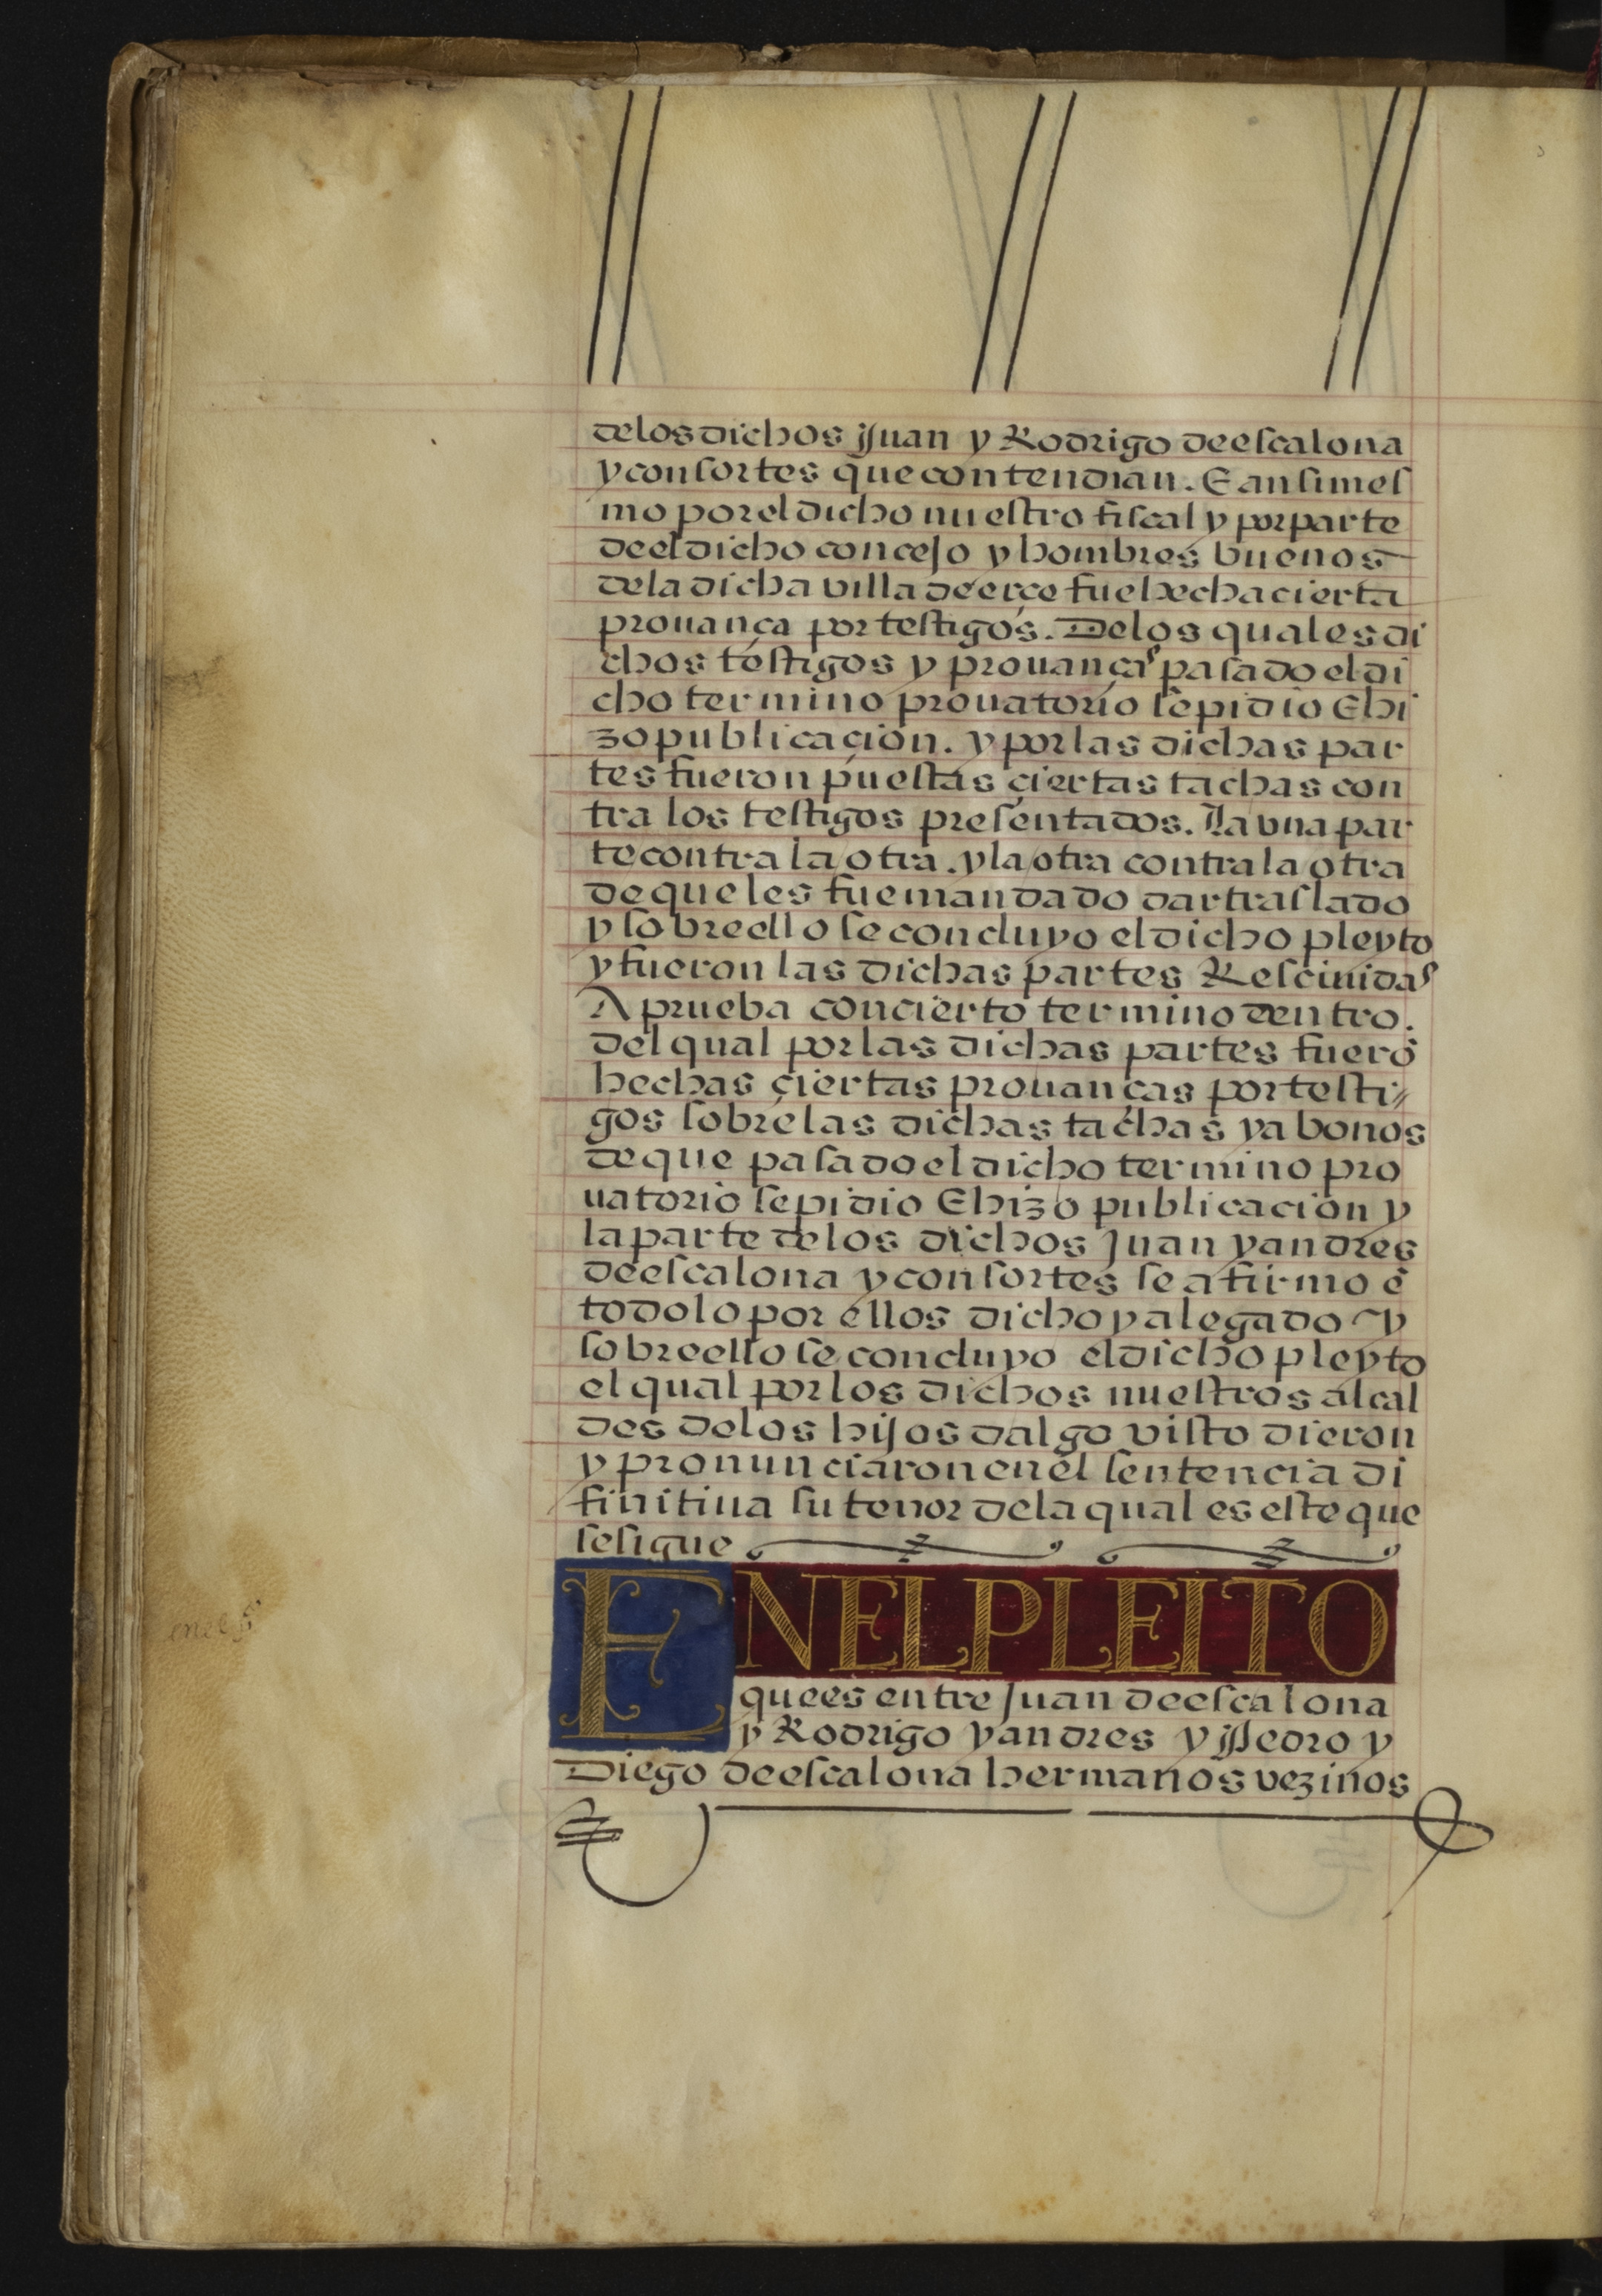 delos dichos Juan y Rodrigo de escalona
y consortes que contendian. E ansimes
mo por el dicho nuestro fiscal y por parte
de el dicho concejo y hombres buenos
dela dicha villa de erçe fue hecha cierta
prouança por testigos. Delos quales di
chos testigos y prouanças pasado el di
cho termino prouatorio se pidio E hi
zo publicaçion. y por las dichas par
tes fueron puestas çiertas tachas con
tra los testigos presentados. La vna par
te contra la otra. y la otra contra la otra
de que les fue mandado dar traslado
y sobre ello se concluyo el dicho pleyto
y fueron las dichas partes Resciuidas
A prueba con cierto termino dentro.
del qual por las dichas partes fuerō
hechas çiertas prouanças por testi
gos sobre las dichas tachas y abonos
de que pasado el dicho termino pro
uatorio se pidio E hizo publicacion y
la parte delos dichos Juan y andres
de escalona y consortes se afirmo ē
todo lo por ellos dicho y alegado y
sobre ello se concluyo el dicho pleyto
el qual por los dichos nuestros alcal
des delos hijos dalgo visto dieron
y pronunciaron en el sentencia di
finitiua su tenor dela qual es este que
se sigue
EN EL PLEITO
que es entre Juan de escalona
y Rodrigo y andres y Pedro y
Diego de escalona hermanos vezinos